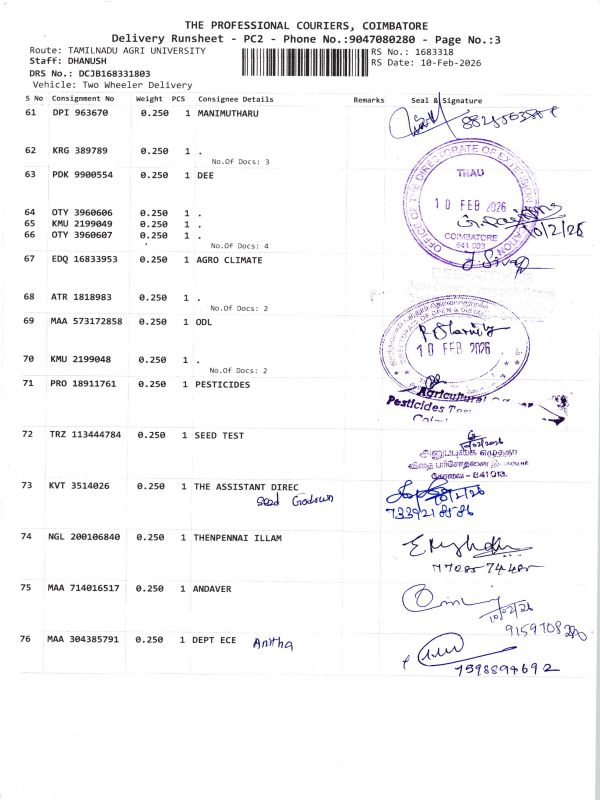 THE PROFESSIONAL COURIERS, COIMBATORE
Delivery Runsheet - PC2 - Phone No.:9047080280 - Page No.:3
Route: TAMILNADU AGRI UNIVERSITY RS No.: 1683318
Staff: DHANUSH RS Date: 10-Feb-2026
DRS No.: DCJB168331803
Vehicle: Two Wheeler Delivery
S No Consignment No Weight PCS Consignee Details Remarks Seal & Signature
61 DPI 963670 0.250 1 MANIMUTHARU
62 KRG 389789 0.250 1 .
No.Of Docs: 3
63 PDK 9900554 0.250 1 DEE
OFFICE OF THE DIRECTORATE OF EXTENSION EDUCATION
TNAU
10 FEB 2026
COIMBATORE
641 003
10/2/26
64 OTY 3960606 0.250 1 .
65 KMU 2199049 0.250 1 .
66 OTY 3960607 0.250 1 .
No.Of Docs: 4
67 EDQ 16833953 0.250 1 AGRO CLIMATE
68 ATR 1818983 0.250 1 .
No.Of Docs: 2
69 MAA 573172858 0.250 1 ODL
10 FEB 2026
70 KMU 2199048 0.250 1 .
No.Of Docs: 2
71 PRO 18911761 0.250 1 PESTICIDES
Agricultural
Pesticides
72 TRZ 113444784 0.250 1 SEED TEST
கோவை - 641 013.
73 KVT 3514026 0.250 1 THE ASSISTANT DIREC
Seed Godown
74 NGL 200106840 0.250 1 THENPENNAI ILLAM
75 MAA 714016517 0.250 1 ANDAVER
10/02/26
76 MAA 304385791 0.250 1 DEPT ECE Anitha
7598894692